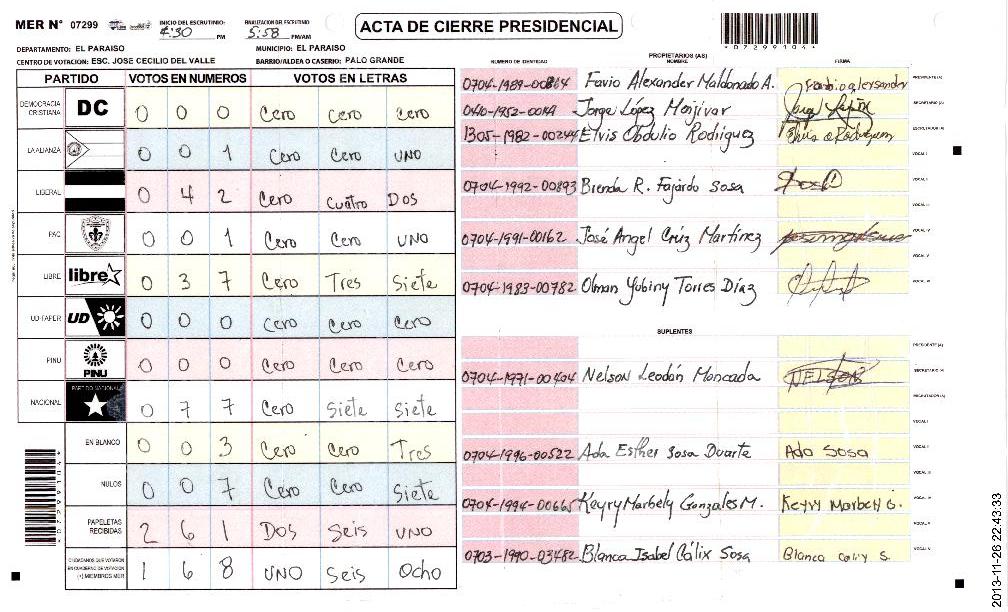 MER N° 07299
INICIO DEL ESCRUTINIO: 4:30 PM
FINALIZACION DEL ESCRUTINIO 5:58 PM/AM
ACTA DE CIERRE PRESIDENCIAL
*07299104*
DEPARTAMENTO: EL PARAISO
MUNICIPIO: EL PARAISO
CENTRO DE VOTACION: ESC. JOSE CECILIO DEL VALLE
BARRIO/ALDEA O CASERIO: PALO GRANDE
PARTIDO VOTOS EN NUMEROS VOTOS EN LETRAS
DEMOCRACIA CRISTIANA DC 0 0 0 Cero Cero Cero
LA ALIANZA 0 0 1 Cero Cero UNO
LIBERAL 0 4 2 Cero Cuatro Dos
PAC 0 0 1 Cero Cero UNO
LIBRE libre 0 3 7 Cero Tres Siete
UD-FAPER UD 0 0 0 Cero Cero Cero
PINU PINU 0 0 0 Cero Cero Cero
NACIONAL PARTIDO NACIONAL 0 7 7 Cero Siete Siete
EN BLANCO 0 0 3 Cero Cero Tres
NULOS 0 0 7 Cero Cero Siete
PAPELETAS RECIBIDAS 2 6 1 DOS Seis UNO
CIUDADANOS QUE VOTARON EN CUADERNO DE VOTACION (+) MIEMBROS MER 1 6 8 UNO Seis Ocho
PROPIETARIOS (AS)
NUMERO DE IDENTIDAD NOMBRE FIRMA
Favio Alexander Maldonado A. PRESIDENTE (A)
Jorge López Menjívar SECRETARIO (A)
1305-1982-00244 Elvis Obdulio Rodríguez Elvis O Rodriguez ESCRUTADOR (A)
VOCAL I
0704-1992-00893 Brenda R. Fajardo Sosa VOCAL II
VOCAL III
0704-1991-00162 José Angel Crúz Martínez VOCAL IV
VOCAL V
0704-1983-00782 Olman Yubiny Torres Díaz VOCAL VI
SUPLENTES
PRESIDENTE (A)
0704-1971-00404 Nelson Leodán Moncada NELSON SECRETARIO (A)
ESCRUTADOR (A)
VOCAL I
0704-1996-00522 Ada Esther Sosa Duarte Ada Sosa VOCAL II
VOCAL III
0704-1994-00665 Keyry Marbely Gonzales M. Keyry Marbely G. VOCAL IV
VOCAL V
0703-1990-03482 Blanca Isabel Cálix Sosa Blanca Calix S. VOCAL VI
2013-11-26 22:43:33